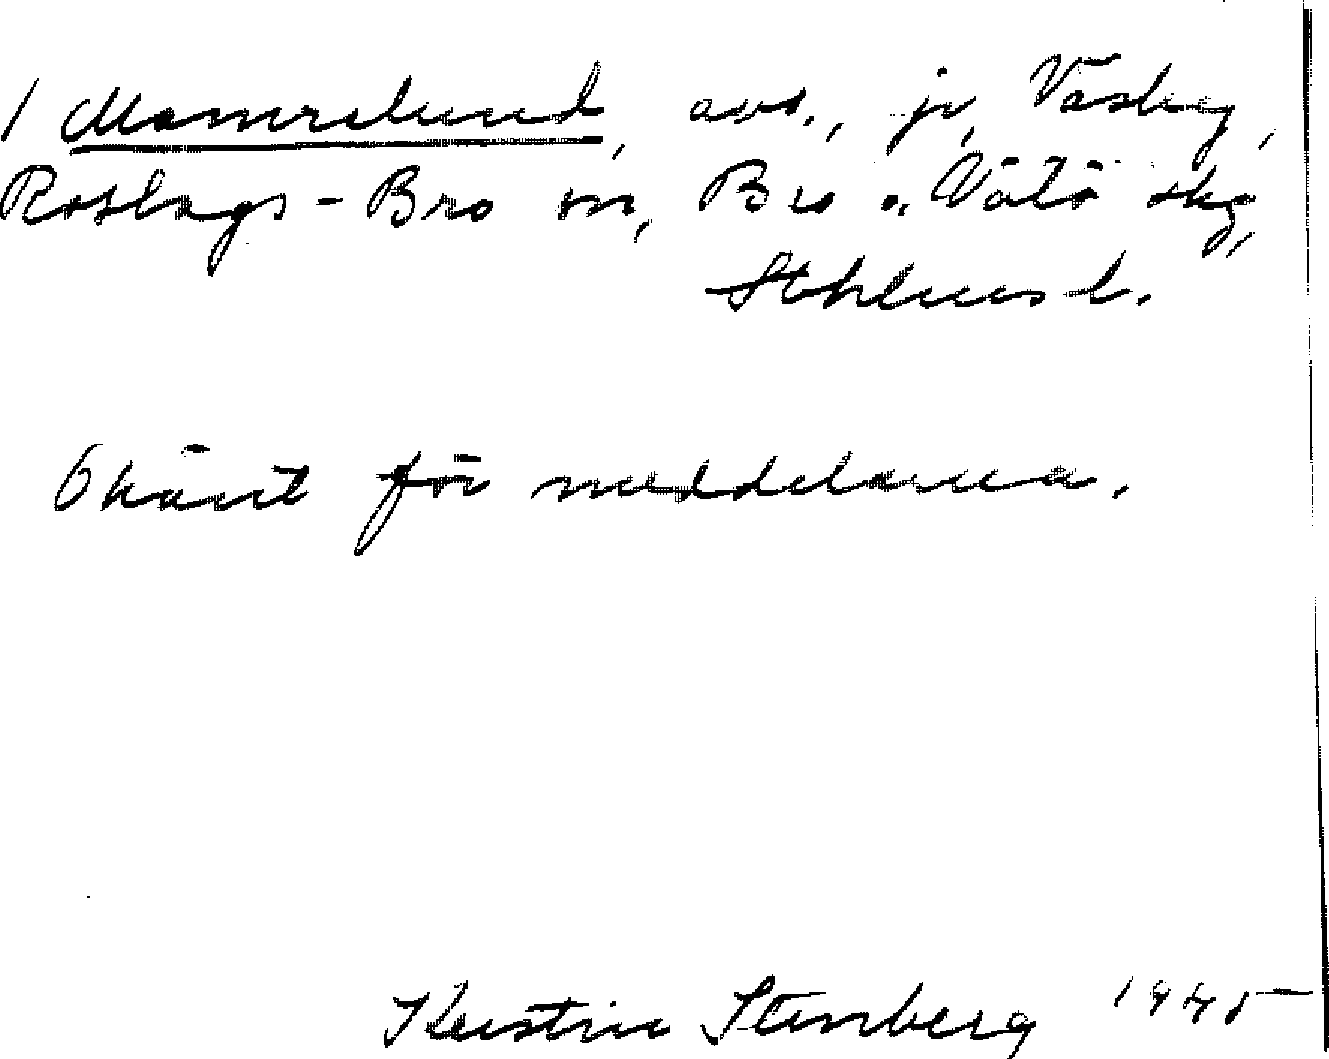 / Mamrelund, avs., jr, Väsby,
Roslags-Bro sn, Bro o. Vätö skg,
Sthlms l.
Okänt för meddelarna.
Kerstin Stenberg 1945